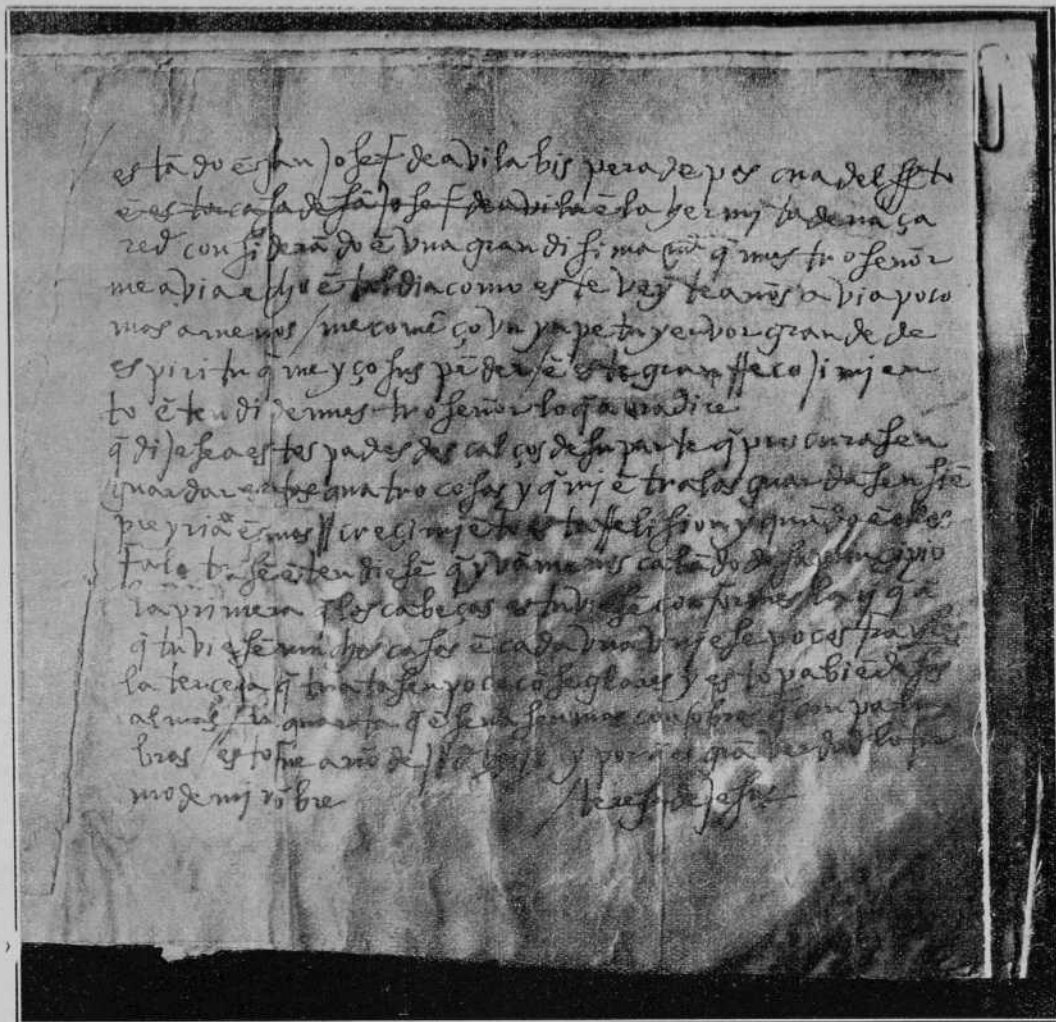 estādo ē san josef de avila bispera de pascua del spto
ē esta casa de sā josef de avila ē la hermita de naça
red considerādo ē vna grandisima md q̄ nuestro señor
me avia echo ē tal dia como este veynte años avia poco
mas a menos / me comēço vn ypetu y ervor grande de
espiritu q̄ me yço suspēder / ē este gran rrecojimien
to ētendi de nuestro señor lo q̄ aora dire
q̄ dijese a estos padres descalços de su parte q̄ procurasen
guardar estas quatro cosas y q̄ miētra las guardasen siē
pre yria ē mas crecimiēto esta rrelision y quādo ē ellas
faltasē ētendiesē q̄ yvā menoscabādo de su prinçipio
la primera q̄ las cabeças estuviesē conformes la
q̄ tuviesē muchas casas ē cada vna vviese pocos frayles
la terçera q̄ tratasen poco cō seglares y esto pa biē de sus
almas / la quarta q̄ ēseñasen mas con obras q̄ con pala
bras / esto fue año de y porq̄ es grā verdad lo fir
mo de mi nōbre teresa de jesus